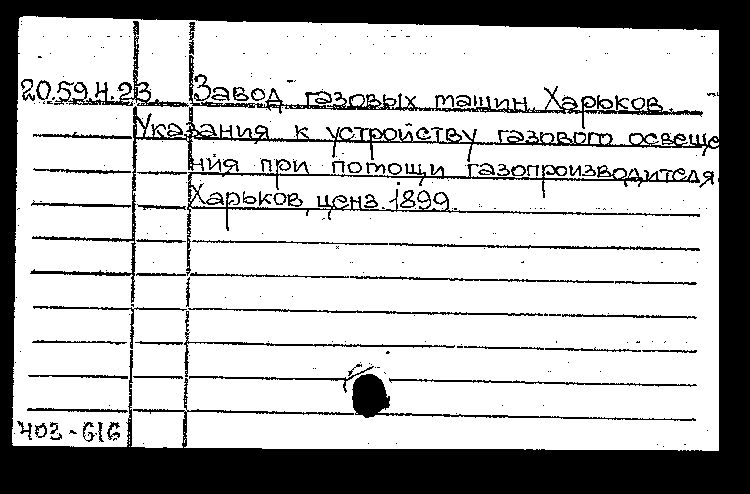 20.59.4.23. Завод газовых машин. Харьков.
Указания к устройству газового освеще
ния при помощи газопроизводителя.
Харьков, ценз. 1899.
403-616